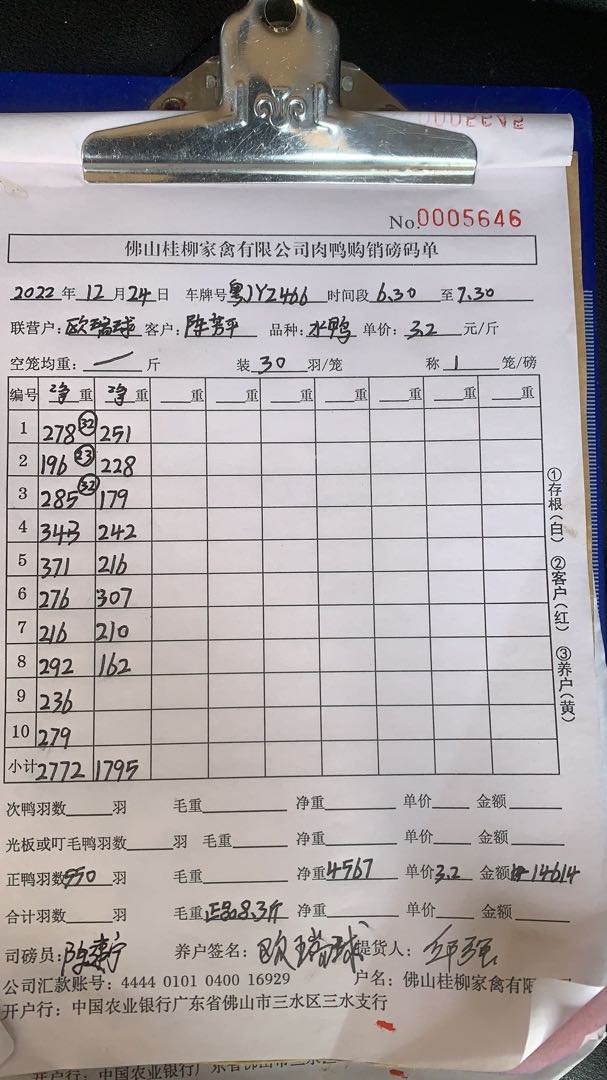 No.0005646
佛山桂柳家禽有限公司肉鸭购销磅码单
2022年12月24日 车牌号粤JY2466 时间段6.30至7.30
联营户:欧瑞球 客户:陈芳平 品种:水鸭 单价:3.2元/斤
空笼均重:一斤 装30羽/笼 称1笼/磅
编号 净重 净重 重 重 重 重 重 重 重
1 278 32 251
2 196 23 228
3 285 32 179
4 343 242
5 371 216
6 276 307
7 216 210
8 292 162
9 236
10 279
小计 2772 1795
①存根(白) ②客户(红) ③养户(黄)
次鸭羽数 羽 毛重 净重 单价 金额
光板或叮毛鸭羽数 羽 毛重 净重 单价 金额
正鸭羽数550羽 毛重 净重4567 单价3.2 金额14614
合计羽数 羽 毛重正品8.3斤 净重 单价 金额
司磅员: 养户签名:欧瑞球 提货人:
公司汇款账号:4444 0101 0400 16929 户名:佛山桂柳家禽有限
开户行:中国农业银行广东省佛山市三水区三水支行
开户行:中国农业银行广东省佛山市三水区三